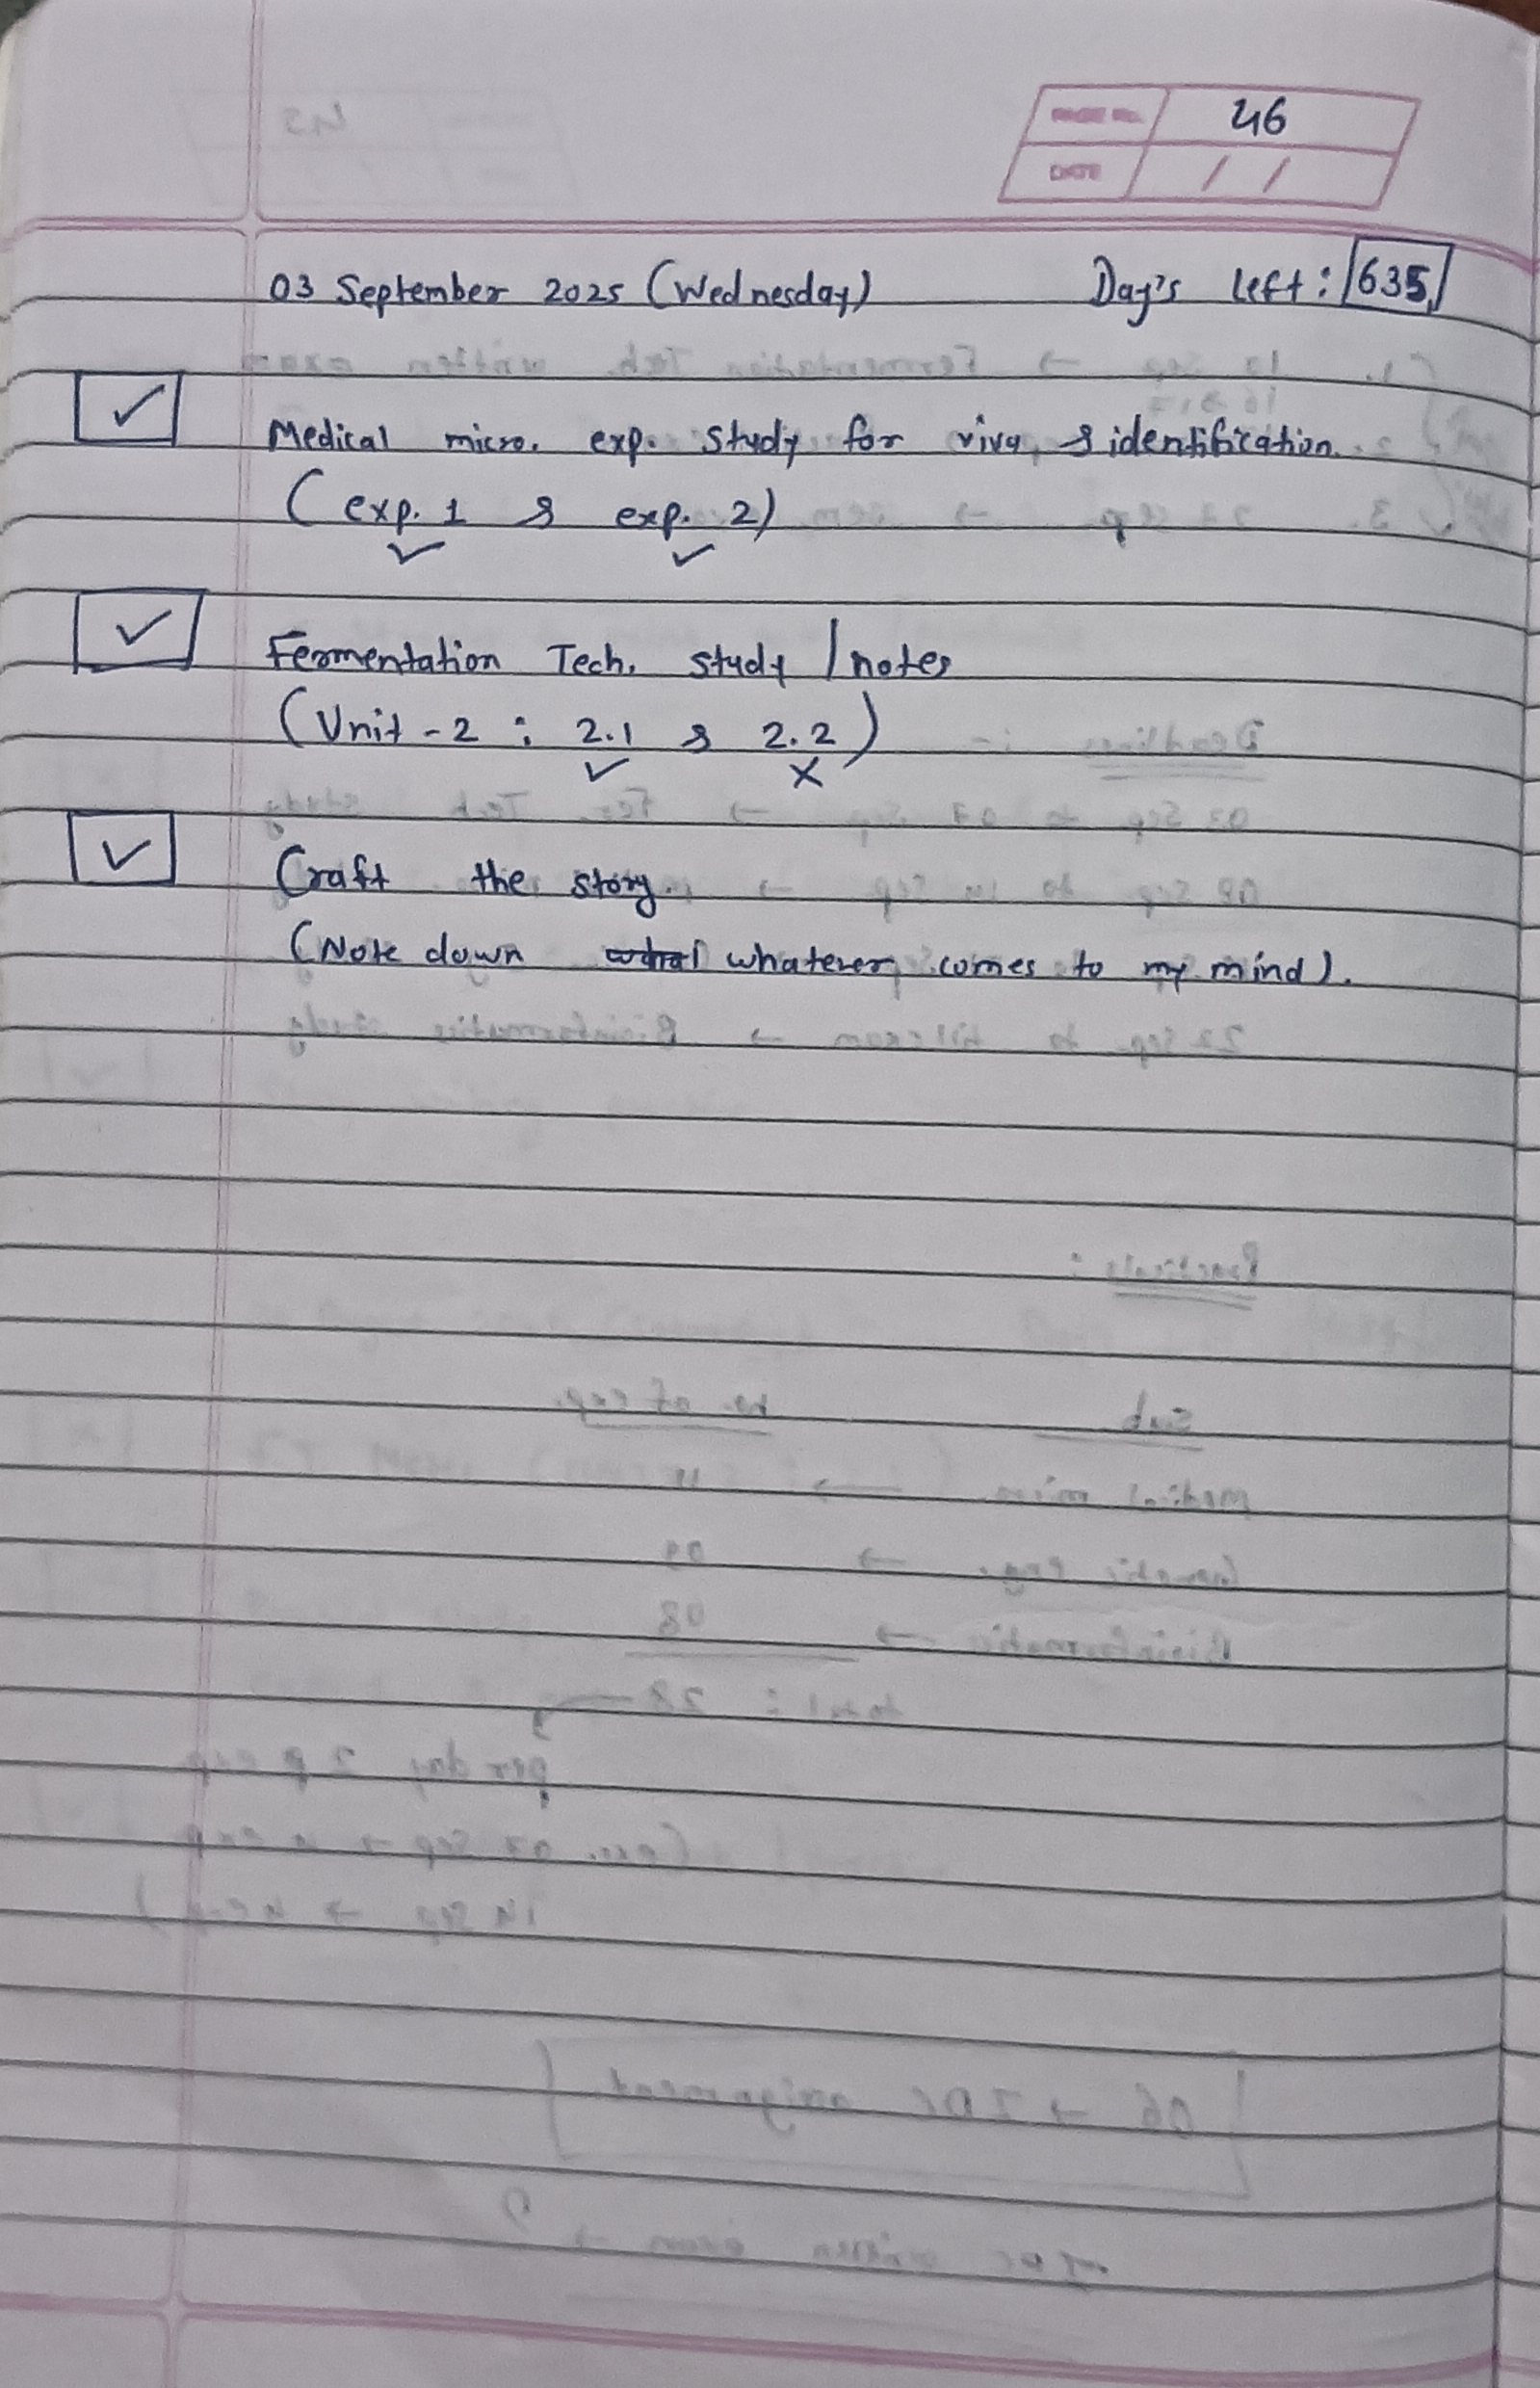 PAGE No. 46
DATE / /
03 September 2025 (Wednesday) Day's left : 635
Medical micro. exp. study for viva, & identification.
(exp. 1 & exp. 2)
Fermentation Tech. study / notes
(Unit - 2 : 2.1 & 2.2)
Craft the story.
(Note down what whatever comes to my mind).